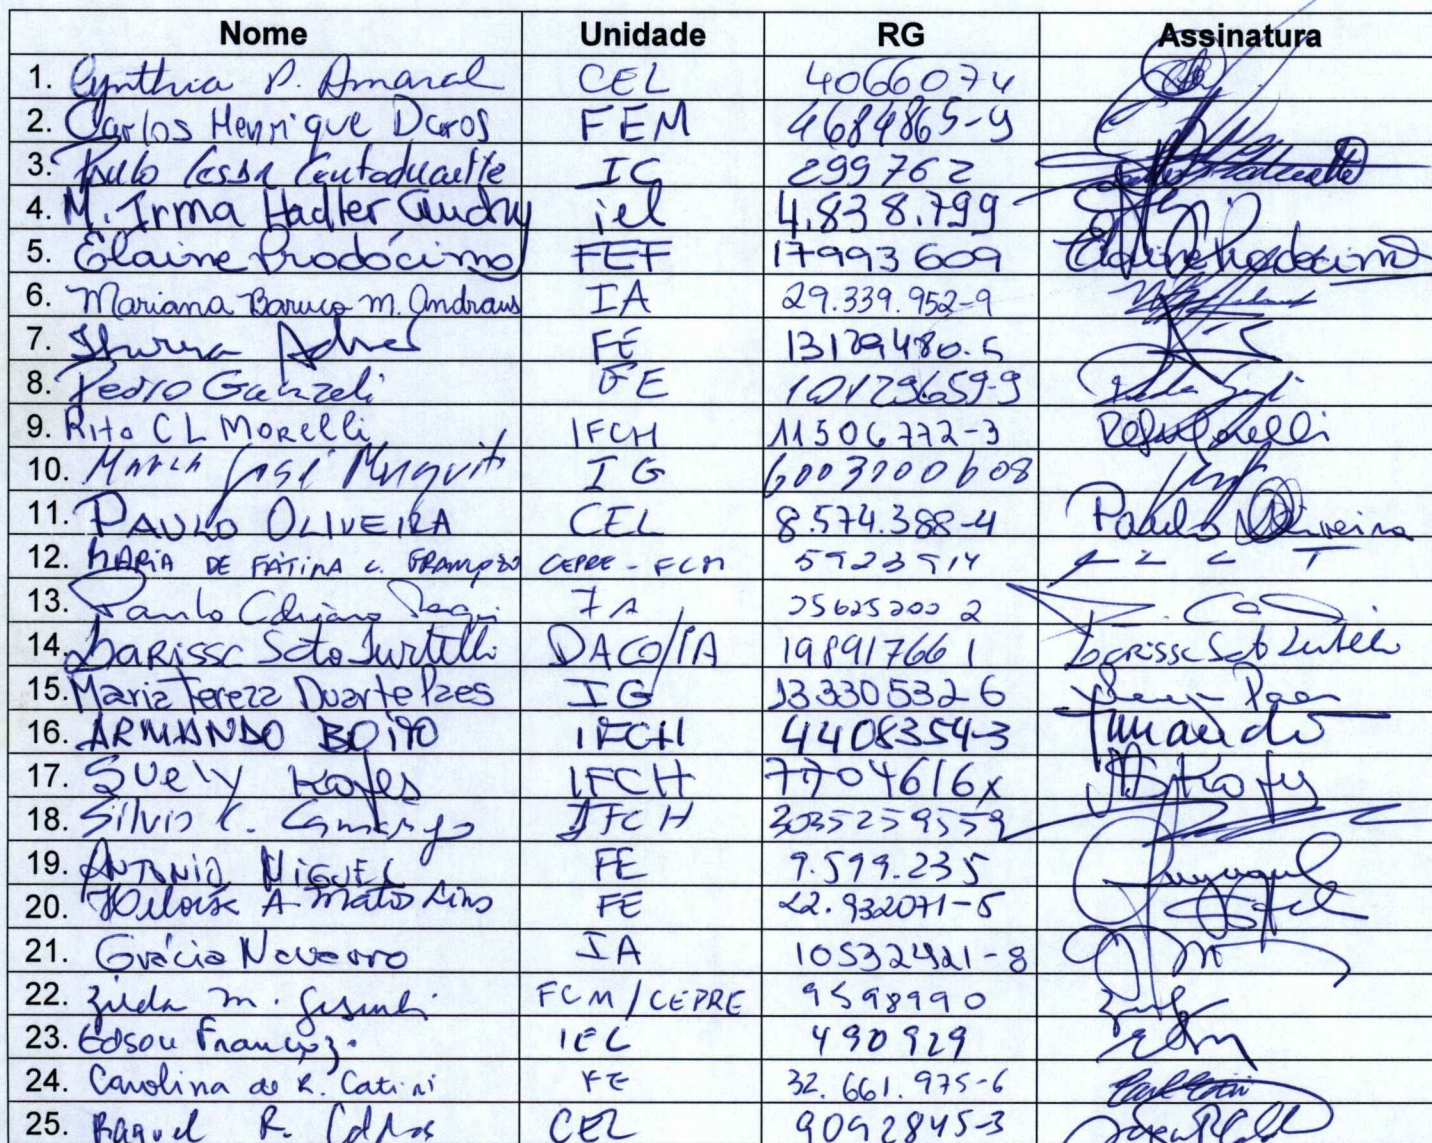 Nome Unidade RG Assinatura
1. Cynthia P. Amaral CEL 4066074
2. Carlos Henrique Daros FEM 4684865-9
3. Paulo Cesar Centoducatte IC 299762
4. M. Irma Hadler Coudry iel 4.838.799
5. Elaine Prodócimo FEF 17993609 Elaine Prodócimo
6. Mariana Baruco M. Andraus IA 29.339.952-9
7. FE 13129480-5
8. Pedro Ganzeli FE 10129659-9
9. Rita C L Morelli IFCH 11506772-3
10. Maria José IG 6003200608
11. PAULO OLIVEIRA CEL 8.574.388-4 Paulo Oliveira
12. MARIA DE FÁTIMA C. FRANÇOZO CEPRE - FCM
13. Paulo IA 256252002
14. Larissa Sato Turtelli DACO/IA 198917661 Larissa Sato Turtelli
15. Maria Tereza Duarte Paes IG 13330532-6 Paes
16. ARMANDO BOITO IFCH 44083543 Armando
17. Suely Kofes IFCH 7704616x SKofes
18. Silvio C. Camargo IFCH 3035259559
19. ANTONIO MIGUEL FE 9.599.235
20. Heloísa A. Matos Lins FE 22.932071-5
21. Grácia Navarro IA 10532421-8
22. Zilda M. Gesueli FCM/CEPRE 9598990
23. Edson Françozo IEL 490929
24. Carolina de R. Catini FE 32.661.975-6
25. Raquel R. Caldas CEL 9092845-3